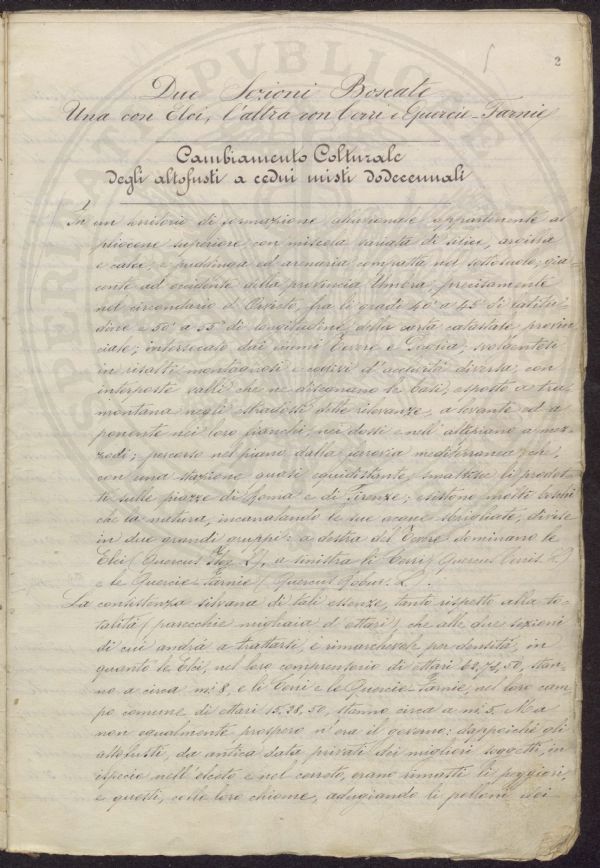 2
Due Sezioni Boscate
Una con Elci, l'altra con Cerri e Quercie-Farnie
Cambiamento Colturale
degli altofusti a cedui misti dodecennali
In un territorio di formazione alluvionale appartenente al
pliocene superiore con miscela variata di silice, argilla
e calce, e puddinga ed arenaria compatta nel sottosuolo; gia-
cente ad occidente della provincia Umbra, precisamente
nel circondario d'Orvieto, fra li gradi 40' a 45' di latitu-
dine e 50' a 55' di longitudine della carta catastale provin-
ciale; intersecato dai fiumi Tevere e Paglia; svolgentesi
in risalti montagnosi e cogivi d'acclività diversa, con
interposte valli che ne disegnano le basi; esposto a tra-
montana negli estradossi delle rilevanze, a levante ed a
ponente nei loro fianchi, nei dossi e nell'altipiano a mez-
zodì; percorso nel piano dalla ferrovia mediterranea che,
con una stazione quasi equidistante, smaltisce li prodot-
ti sulle piazze di Roma e di Firenze; esistono molti boschi
che la natura, incanalando le sue acque sbrigliate, divise
in due grandi gruppi: a destra del Tevere dominano le
Elci (Quercus Ilex L), a sinistra li Cerri (Quercus Cerris L)
e le Quercie-Farnie (Quercus Robur L).
La consistenza silvana di tali essenze, tanto rispetto alla to-
talità (parecchie migliaia d'ettari) che alle due sezioni
di cui andrà a trattarsi, è rimarchevole per densità, in
quanto le Elci, nel loro comprensorio di ettari 62,74,50, stan-
no a circa m. 8, e li Cerri e le Quercie-Farnie, nel loro cam-
po comune di ettari 15,28,50, stanno circa a m. 5. Ma
non egualmente prospero n'era il governo: dappoichè gli
altofusti, da antica data, privati dei migliori soggetti, in
ispecie nell'elceto e nel cerreto, erano rimasti li peggiori,
e questi, colle loro chiome, aduggiando li polloni vici-